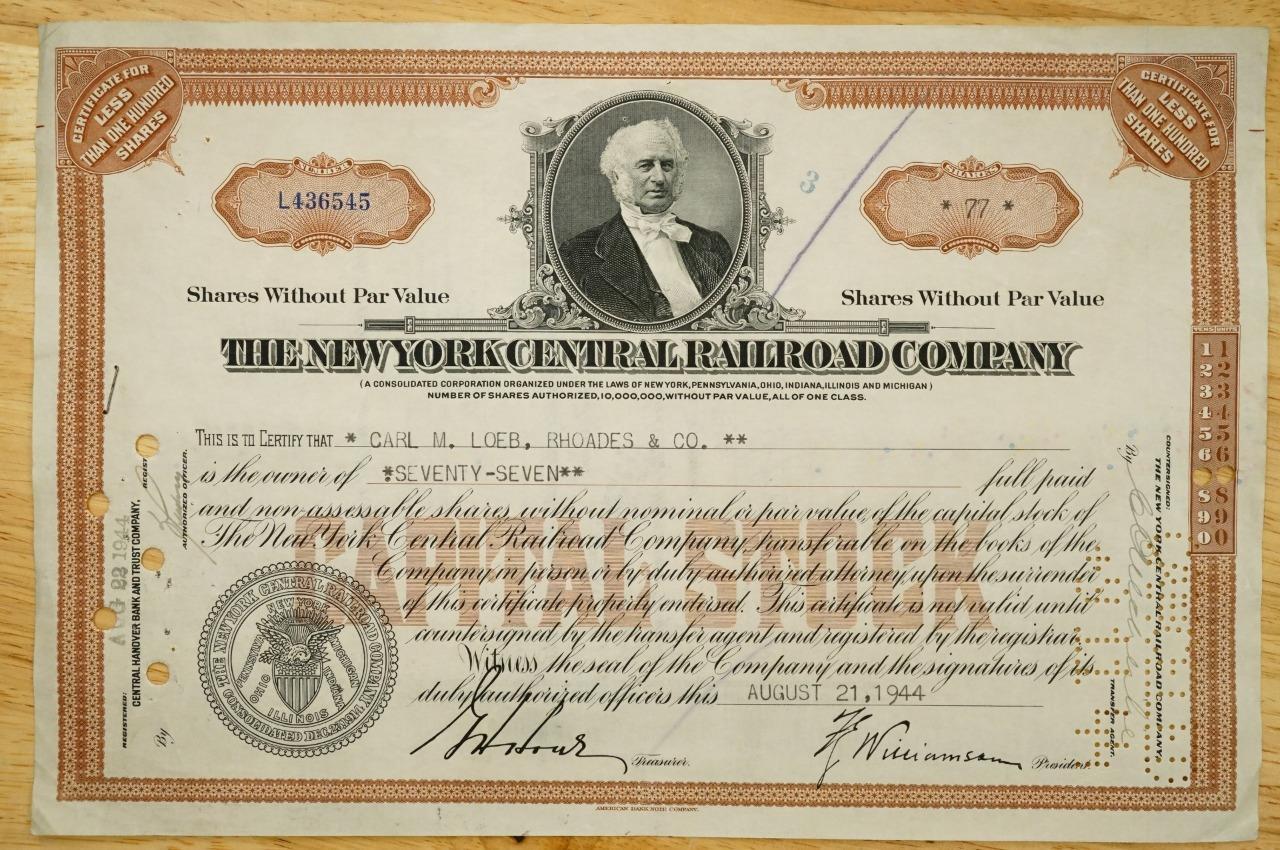 CERTIFICATE FOR
LESS
THAN ONE HUNDRED
SHARES
CERTIFICATE FOR
LESS
THAN ONE HUNDRED
SHARES
NUMBER
L436545
3
SHARES
* 77 *
Shares Without Par Value
Shares Without Par Value
THE NEW YORK CENTRAL RAILROAD COMPANY
(A CONSOLIDATED CORPORATION ORGANIZED UNDER THE LAWS OF NEW YORK, PENNSYLVANIA, OHIO, INDIANA, ILLINOIS AND MICHIGAN)
NUMBER OF SHARES AUTHORIZED, 10,000,000, WITHOUT PAR VALUE, ALL OF ONE CLASS.
THIS IS TO CERTIFY THAT * CARL M. LOEB, RHOADES & CO. **
is the owner of *SEVENTY-SEVEN** full paid
and non-assessable shares without nominal or par value, of the capital stock of
The New York Central Railroad Company, transferable on the books of the
Company, in person or by duly authorized attorney, upon the surrender
of this certificate properly endorsed. This certificate is not valid until
countersigned by the transfer agent and registered by the registrar.
Witness the seal of the Company and the signatures of its
duly authorized officers this AUGUST 21, 1944
CAPITAL STOCK
Treasurer.
F E Williamson
President.
THE NEW YORK CENTRAL RAILROAD COMPANY
CONSOLIDATED DEC. 23, 1914
NEW YORK
PENNSYLVANIA
MICHIGAN
OHIO
INDIANA
ILLINOIS
REGISTERED:
CENTRAL HANOVER BANK AND TRUST COMPANY,
REGIST
By
AUTHORIZED OFFICER.
AUG 23 1944
COUNTERSIGNED:
THE NEW YORK CENTRAL RAILROAD COMPANY,
By
TRANSFER AGENT.
TENS UNITS
1 1
2 2
3 3
4 4
5 5
6 6
8 8
9 9
0 0
AMERICAN BANK NOTE COMPANY.